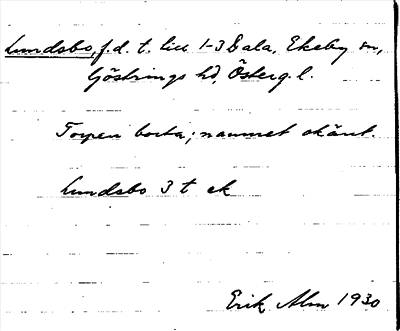 Lundsbo, f.d. t. lill 1-3 Dala, Ekeby sn,
Göstrings hd, Österg. l.
Torpen borta; namnet okänt.
Lundsbo 3 t ek
Erik Alm 1930